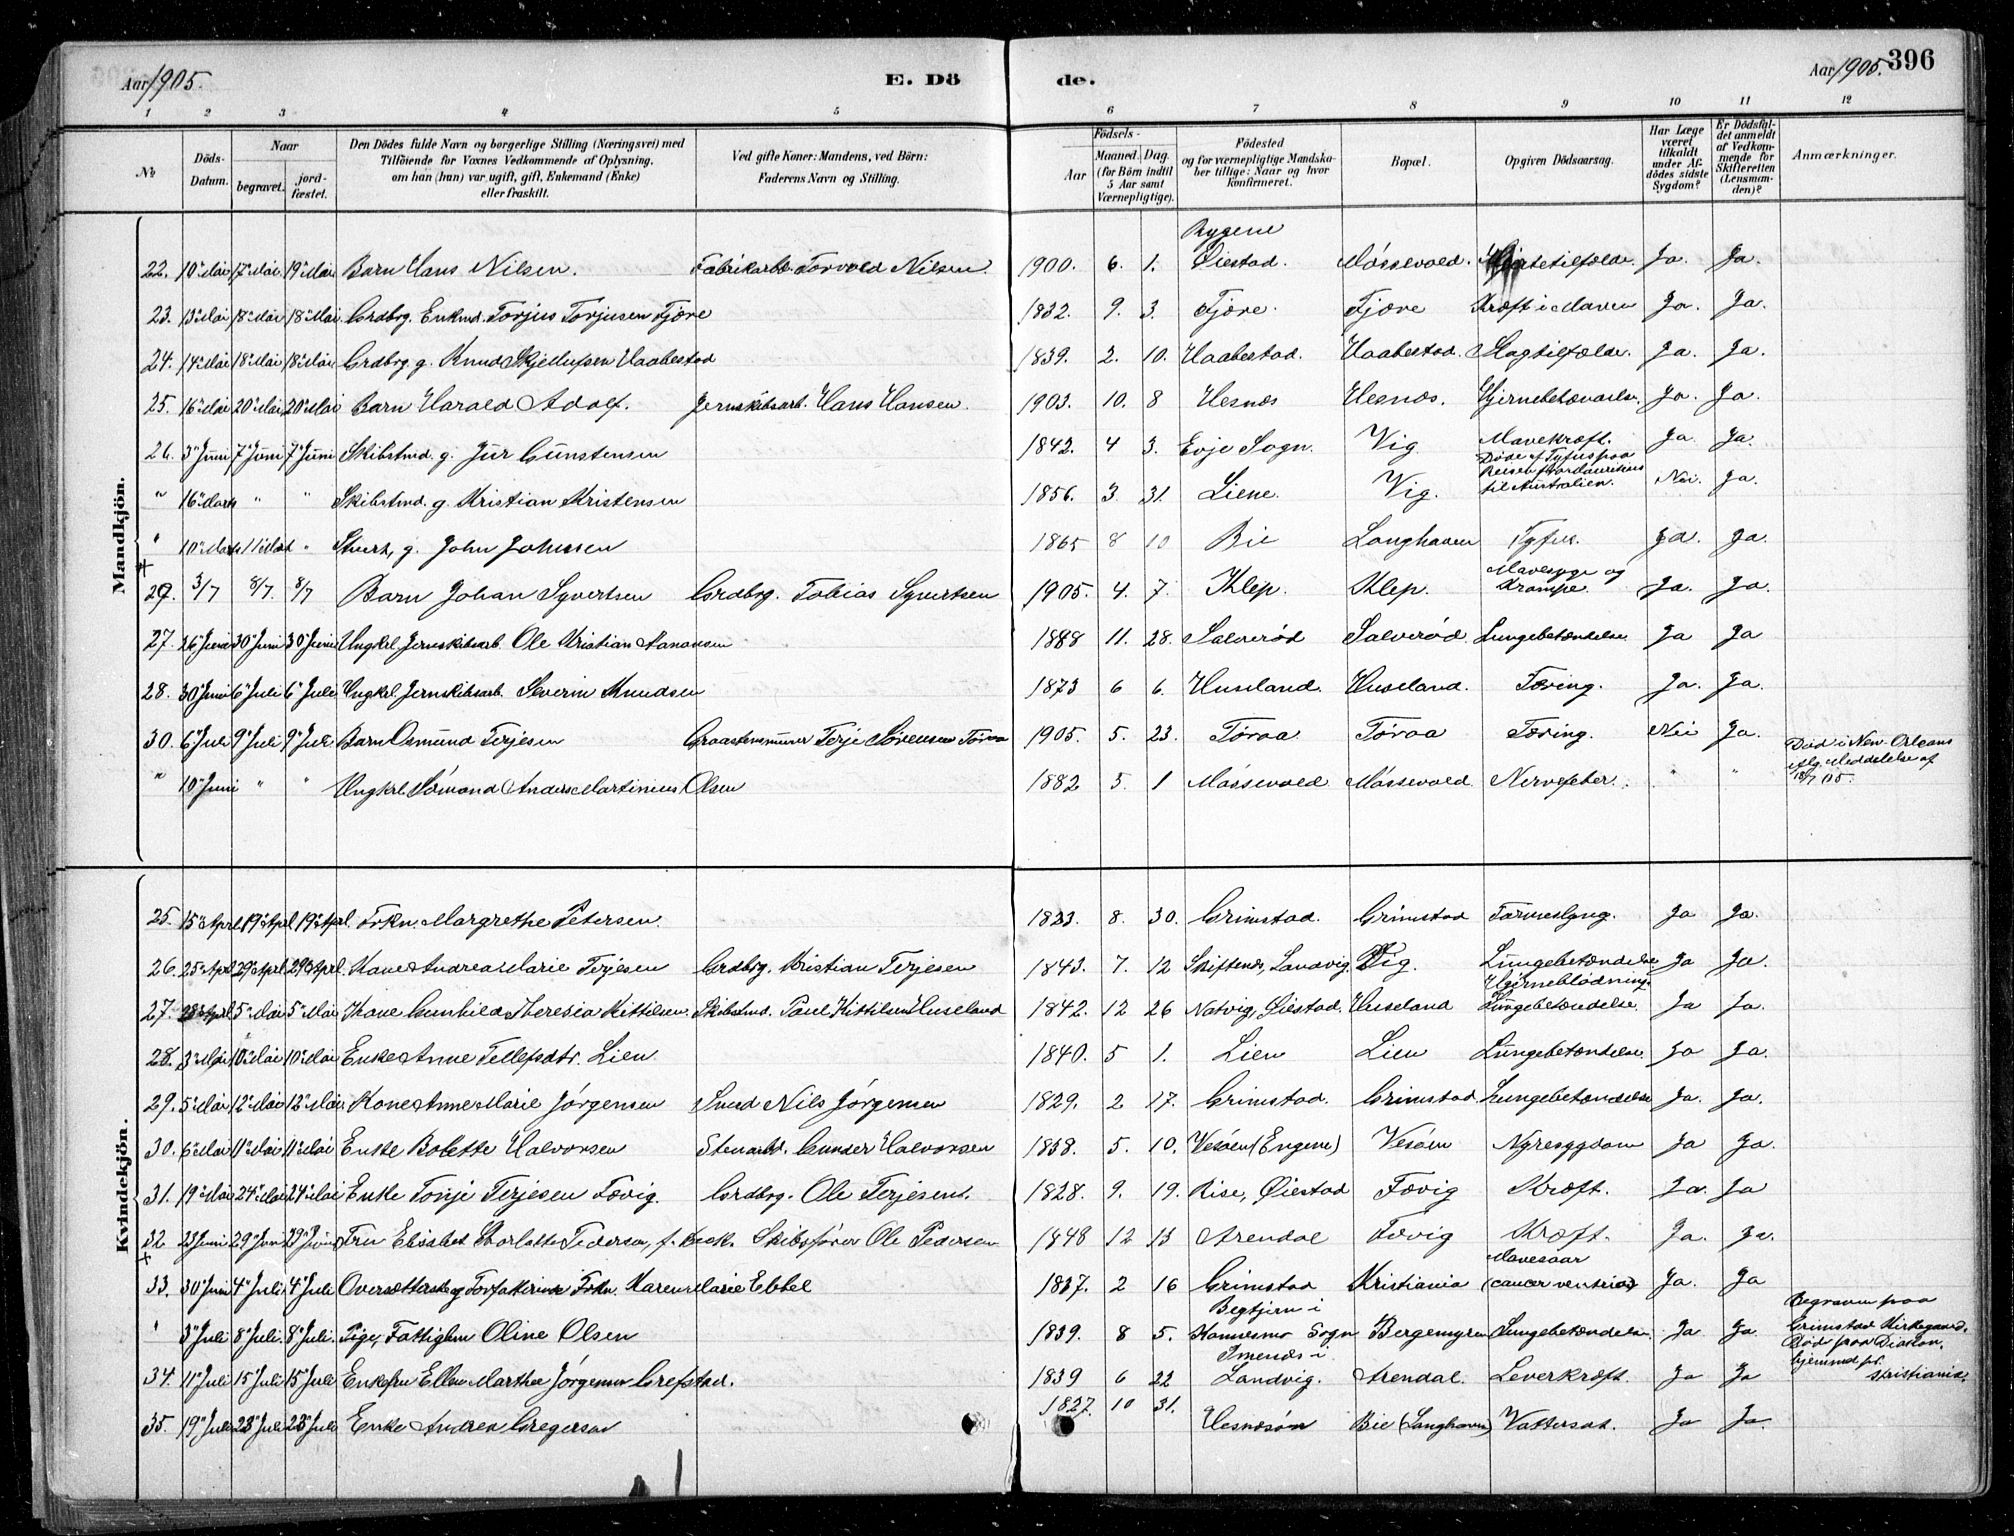 Aar 1905.
E. Dö de.
Aar 1905. 396
1 2 3 4 5 6 7 8 9 10 11 12
No
Döds-Datum.
Naar
begravet.
jord-fæstet.
Den Dödes fulde Navn og borgerlige Stilling (Næringsvei) med
Tilföiende for Voxnes Vedkommende af Oplysning,
om han (hun) var ugift, gift, Enkemand (Enke)
eller fraskilt.
Ved gifte Koner: Mandens, ved Börn:
Faderens Navn og Stilling.
Födsels-
Aar
Maaned. Dag.
(for Börn indtil
5 Aar samt
Værnepligtige).
Födested
og for værnepligtige Mandska-
ber tillige: Naar og hvor
konfirmeret.
Bopæl.
Opgiven Dödsaarsag.
Har Læge
været
tilkaldt
under Af-
dödes sidste
Sygdom?
Er Dödsfal-
det anmeldt
af Vedkom-
mende for
Skifteretten
(Lensman-
den)?
Anmærkninger.
Mandkjön.
Rygene
22. 10 Mai 17 Mai 19 Mai Barn Hans Nilsen. Fabrikarb. Torvald Nilsen 1900. 6. 1. Øiestad. Møssevold. Ja. Ja.
23. 13 Mai 18 Mai 18 Mai Grdbrg. Enkmd. Torjus Torjusen Fjære 1832. 9. 3. Fjære. Fjære Kræft i Maven Ja. Ja.
24. 14 Mai 18 Mai 18 Mai Grdbrg. g. Knud Haabestad 1839. 2. 10. Haabestad. Haabestad. Slagtilfælde. Ja. Ja.
25. 16 Mai 20 Mai 20 Mai Barn Harald Adolf. Jernskibsarb. Hans Hansen. 1903. 10. 8 Hesnæs Hesnæs. Hjernebetændelse. Ja. Ja.
26. 3 Juni 7 Juni 7 Juni Skibstmd. g. Jur Gunstensen 1842. 4 3. Evje Sogn. Vig Mavekræft. Ja. Ja.
" 16 Marts " " Skibstmd. g. Kristian Kristensen 1856. 3. 31. Liene. Vig. Døde af Tyfus paa Reisen fra Mauritius til Australien. Nei. Ja.
" 10 Marts 11 Mai " Stuert, g. John Johnsen 1865 8 10 Bie Langhaven Tyfus. Ja. Ja.
29. 3/7 8/7. 8/7 Barn Johan Syvertsen Grdbrg. Tobias Syvertsen 1905. 4. 7. Klep. Klep. Mavesyge og Krampe. Ja. Ja.
27. 26 Juni 30 Juni 30 Juni Ungkrl. Jernskibsarb. Ole Kristian Aanonsen 1888 11. 28. Salverød Salverød. Lungebetændelse Ja Ja
28. 30 Juni 6 Juli 6 Juli Ungkrl. Jernskibsarb. Severin Knudsen 1873 6 6. Huseland. Huseland. Tæring. Ja. Ja.
30. 6 Juli 9 Juli 9 Juli Barn Osmund Terjesen Graastensmurer Terje Sørensen Tøraa 1905. 5. 23. Tøraa Tøraa Tæring. Nei Ja.
" 10 Juni " " Ungkrl. Anders Martinius Olsen 1882 5. 1 Møssevold Møssevold Nervefeber. " " Død i New-Orleans Meddelelse af 18/7 05.
Kvindekjön.
25. 15 April 19 April 19 April. Frkn. Margrethe Petersen. 1823. 8. 30. Grimstad. Grimstad Tarmeslyng. Ja Ja.
26. 25 April 29 April 29 April. Kone Andrea Marie Terjesen Grdbrg. Kristian Terjesen 1843. 7. 12 Skiftenes, Landvig Vig. Lungebetændelse Ja Ja.
27. 28 April 5 Mai 5 Mai Kone Gunhild Theresia Kittilsen. Skibstmd. Paul Kittilsen Huseland 1842. 12 26 Natvig, Øiestad. Huseland Hjerneblødning. Lungebetændelse Ja Ja.
28. 3 Mai 10 Mai 10 Mai Enke Anne Tellefsdtr. Lien 1840. 5 1. Lien Lien Lungebetændelse Ja Ja.
29. 5 Mai 12 Mai 12 Mai Kone Anne Marie Jørgensen Smed Nils Jørgensen 1829. 2 17. Grimstad. Grimstad. Lungebetændelse Ja. Ja.
30. 6 Mai 11 Mai 11 Mai Enke Bolette Halvorsen Stenarbd. Gunder Halvorsen 1838. 5. 10. Vesøen (Engene) Vesøen Nyresygdom Ja Ja.
31. 19 Mai 24 Mai 24 Mai Enke Tonje Terjesen Fævig. Grdbrg. Ole Terjesen. 1828. 9. 19. Rise, Øiestad Fævig Kræft. Ja. Ja
32 23 Juni 29 Juni 29 Juni Fru Elisabet Charlotte Pedersen, f. Beck. Skibsfører Ole Pedersen 1848 12 13 Arendal Fævig Kræft. Ja. Ja.
33. 30 Juni 4 Juli 4 Juli Oversætterske og Forfatterinde Frkn. Karen Marie Ebbel 1837. 2 16 Grimstad Kristiania Mavesaar (cancer ventriculi) Ja. Ja
" 3 Juli 8 Juli. 8 Juli. Pige, Fattiglem Oline Olsen 1839. 8 5. Begtjern i Homesmo Sogn Bergemyren Lungebetændelse Ja Ja Begraven paa Grimstad Kirkegaard. Død paa Diakon. hjemmet pr. Kristiania.
34. 11 Juli 15 Juli 15 Juli Enkefru Ellen Marthea Jørgensen Grefstad. 1839 6 22 Imenæs i Landvig. Arendal. Leverkræft. Ja Ja
35. 19 Juli 23 Juli 23 Juli Enke Andrea Gregersen 1827. 10 31. Hesnæsøen Bie (Langhaven) Vattersot. Ja Ja